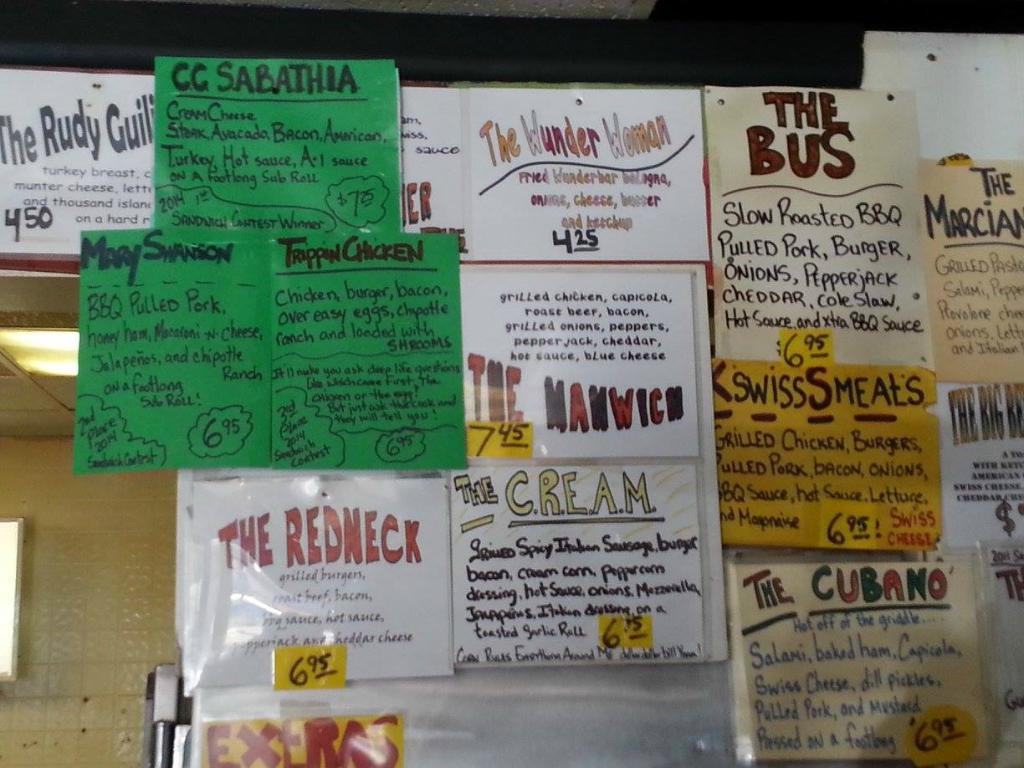 The Rudy Guili
turkey breast, c
munter cheese, lett
and thousand islan
on a hard r
4.50
CC SABATHIA
Cream Cheese
Steak, Avacado, Bacon, American,
Turkey, Hot sauce, A-1 sauce
on a footlong Sub Roll
2014 1st
Sandwich Contest Winner
$7.75
sauce
The Wunder Woman
Fried Wunderbar bologna,
onions, cheese, butter
and ketchup
4.25
THE
BUS
Slow Roasted BBQ
Pulled Pork, Burger,
Onions, Pepperjack
Cheddar, Cole Slaw,
Hot Sauce, and xtra BBQ Sauce
6.95
THE
MARCIAN
GRILLED
Salami, Peppe
Provolone chee
onions, Lett
and Italian
Mary Swanson
BBQ Pulled Pork,
honey ham, Macaroni-N-Cheese,
Jalapenos, and chipotle
Ranch
on a footlong
Sub Roll!
2nd
Place
2014
Sandwich Contest
6.95
Trippin Chicken
Chicken, burger, bacon,
over easy eggs, chipotle
ranch and loaded with
SHROOMS
It'll make you ask deep life questions
like which came first, the
chicken or the egg?
But just ask the cook and
they will tell you!
2014
Sandwich
Contest
6.95
grilled chicken, capicola,
roast beer, bacon,
grilled onions, peppers,
pepperjack, cheddar,
hot sauce, blue cheese
THE MANWICH
7.45
K SWISS SMEATS
Grilled Chicken, Burgers,
Pulled Pork, bacon, onions,
BBQ Sauce, hot Sauce, Lettuce,
nd Mayonaise
6.95!
SWISS
CHEESE
THE BIG
A TO
WITH KETC
AMERICAN
SWISS CHEESE
CHEDDAR CHE
$
THE REDNECK
grilled burgers,
roast beef, bacon,
bbq sauce, hot sauce,
pepperjack and cheddar cheese
6.95
THE C.R.E.A.M.
Grilled Spicy Italian Sausage, burger
bacon, cream corn, peppercorn
dressing, hot Sauce, onions, Mozzarella,
Jalapenos, Italian dressing, on a
toasted Garlic Roll
Corn Rules Everything Around Me dolla dolla bill Yana!
THE CUBANO
Hot off of the griddle....
Salami, baked ham, Capicola,
Swiss Cheese, dill pickles,
Pulled Pork, and Mustard
Pressed on a footlong
$6.95
EXTRAS